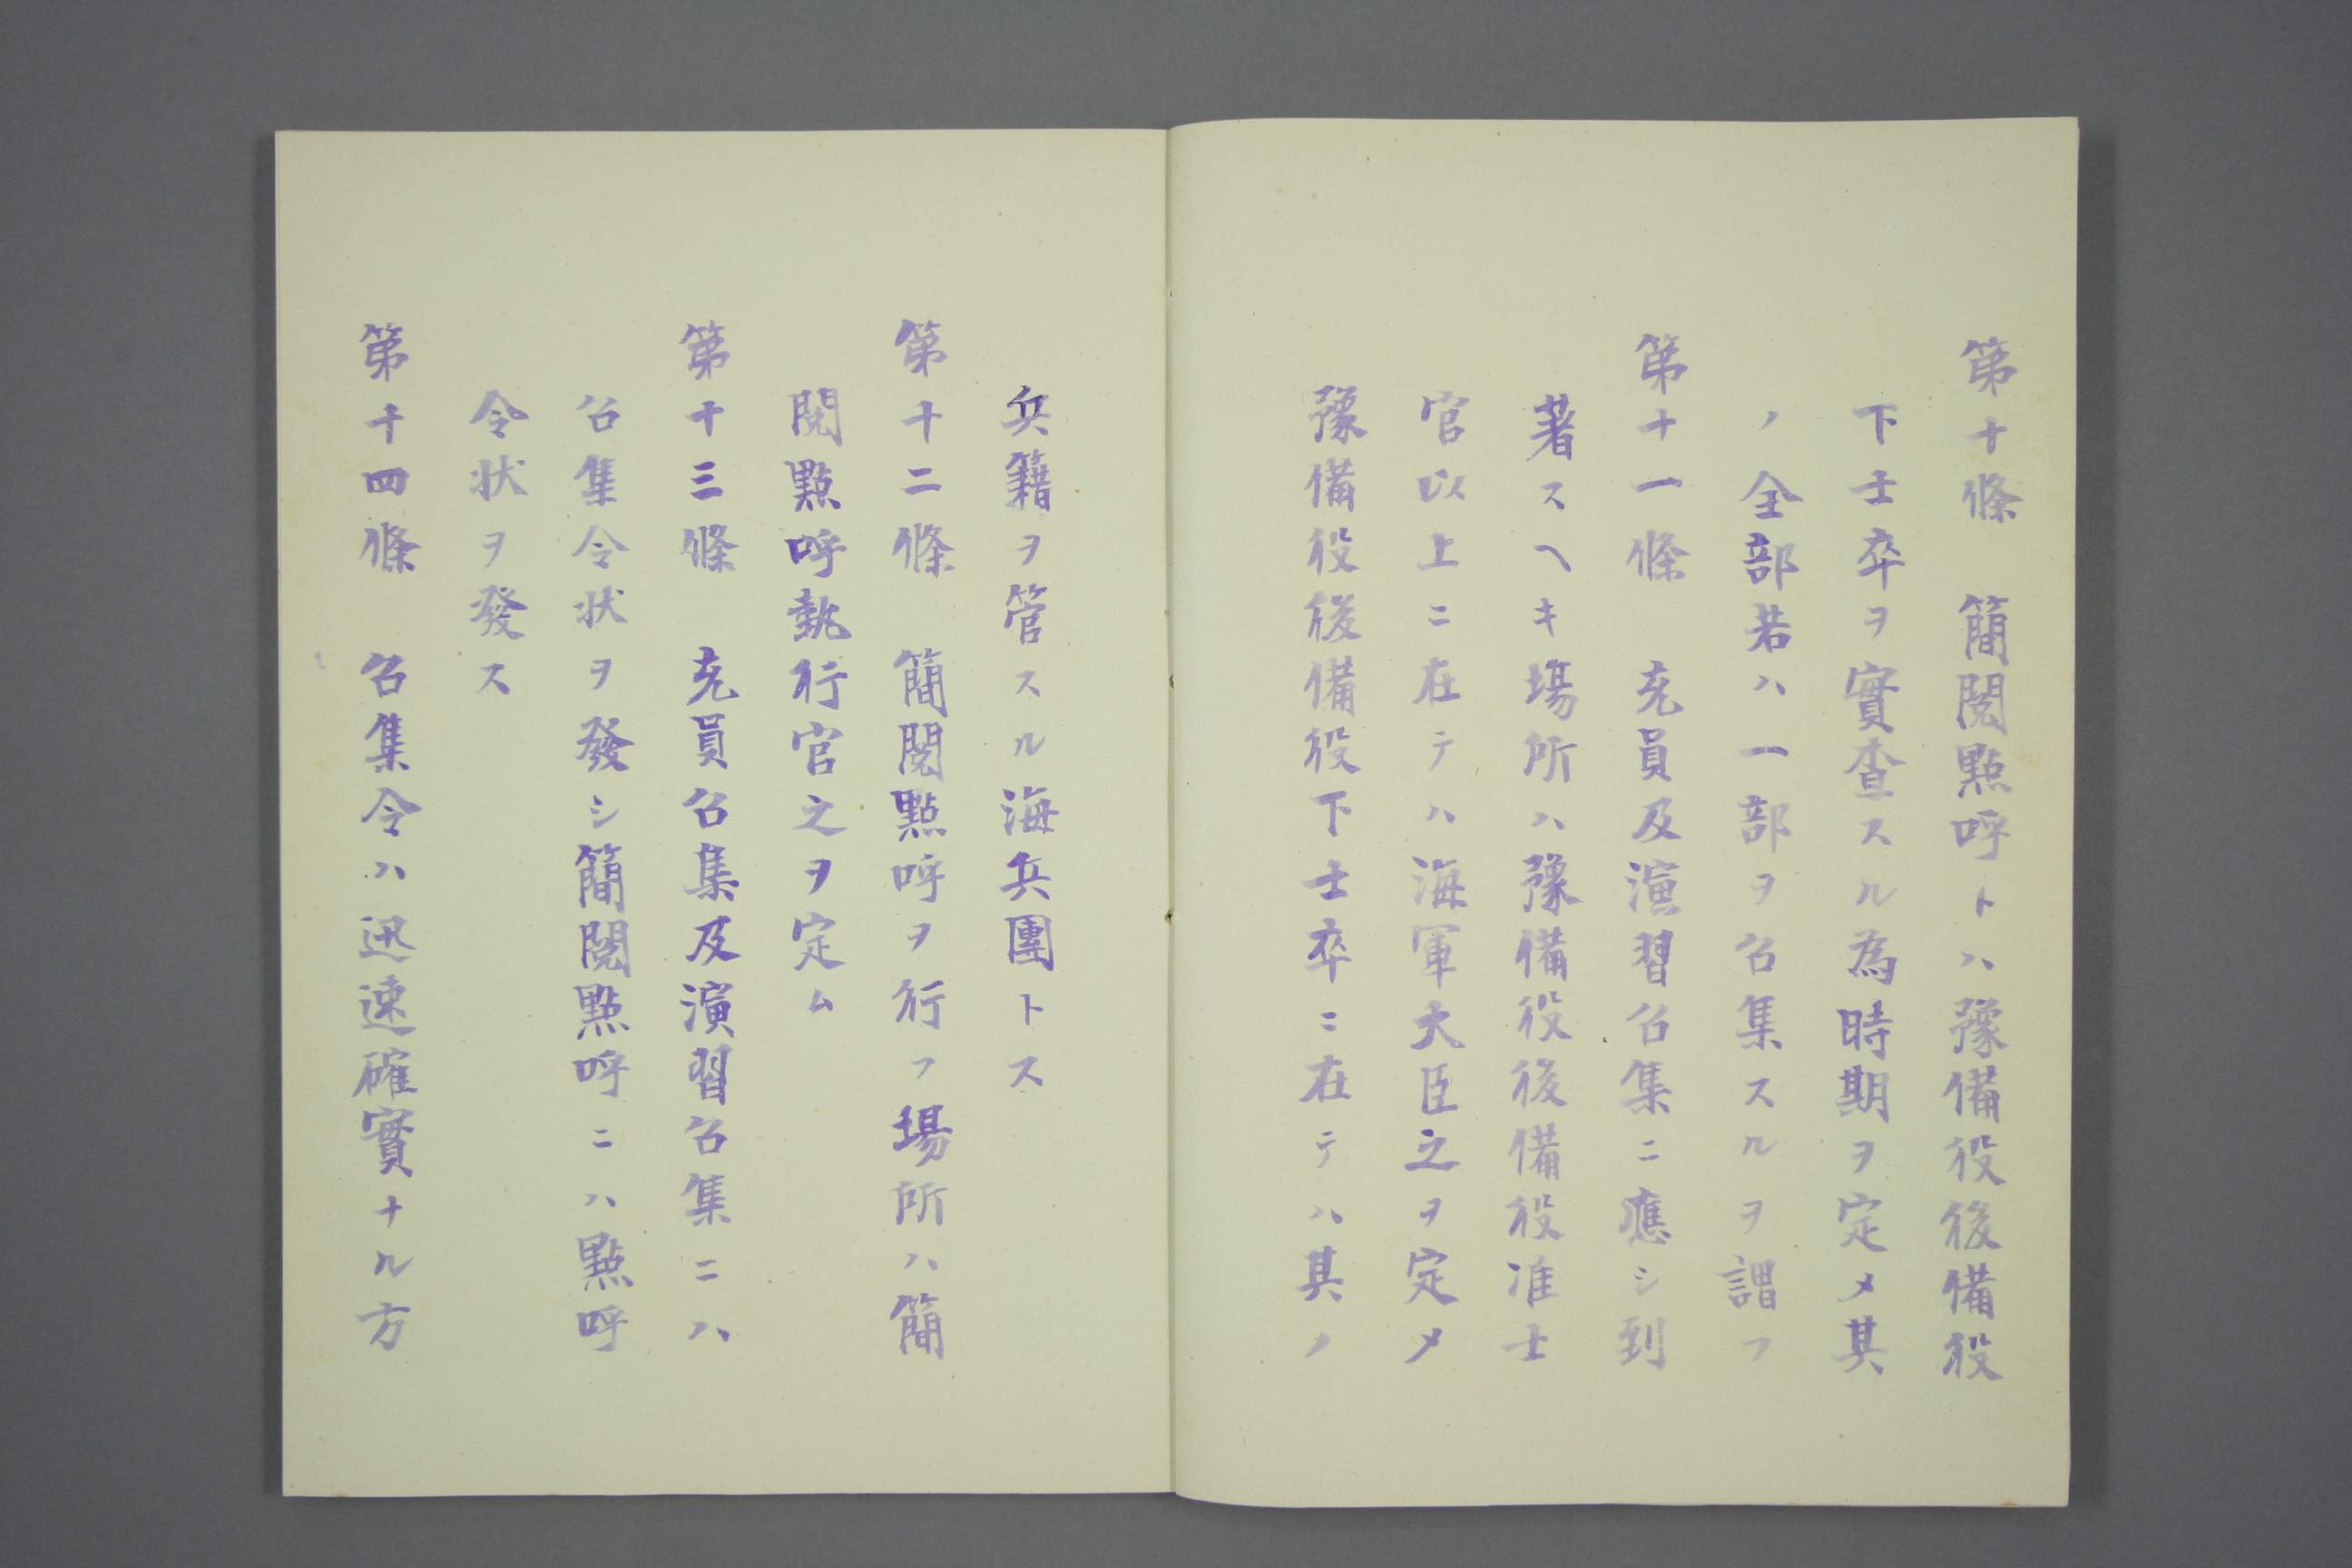 第十條　簡閲點呼トハ豫備役後備役
下士卒ヲ實査スル為時期ヲ定メ其
ノ全部若ハ一部ヲ召集スルヲ謂フ
第十一條　充員及演習召集ニ應シ到
著スヘキ場所ハ豫備役後備役准士
官以上ニ在テハ海軍大臣之ヲ定メ
豫備役後備役下士卒ニ在テハ其ノ
兵籍ヲ管スル海兵團トス
第十二條　簡閲點呼ヲ行フ場所ハ簡
閲點呼執行官之ヲ定ム
第十三條　充員召集及演習召集ニハ
召集令状ヲ發シ簡閲點呼ニハ點呼
令状ヲ發ス
第十四條　召集令ハ迅速確實ナル方